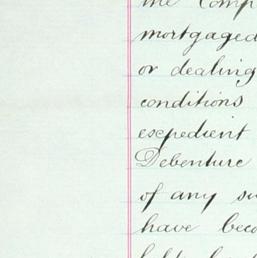 the Comp
mortgaged
or dealing
conditions
expedient
Debenture
of any su
have beco